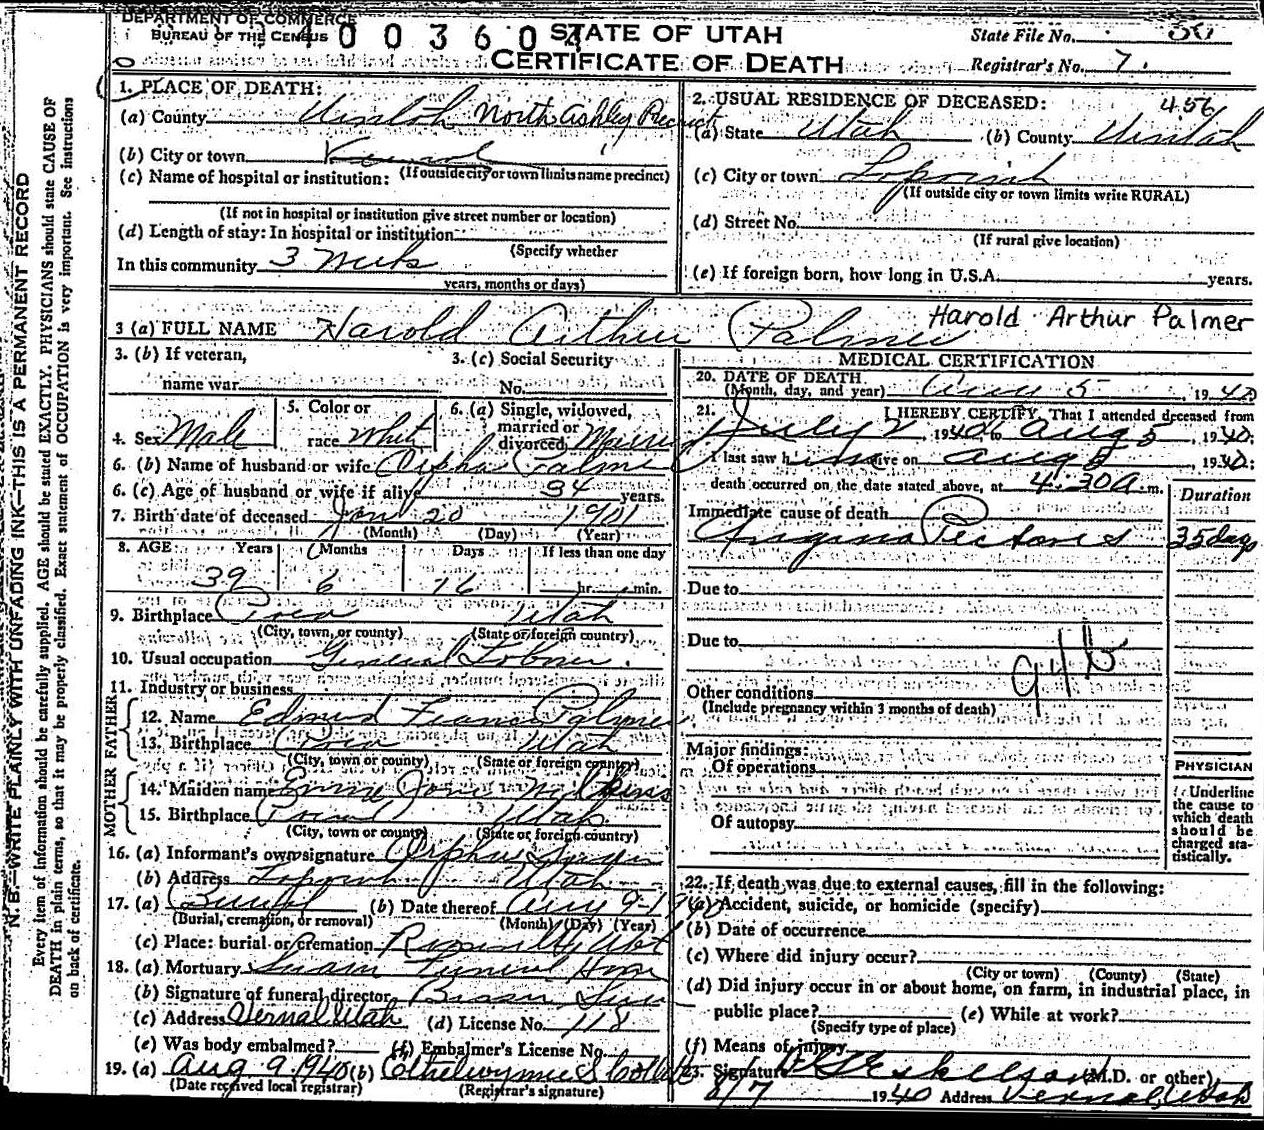 DEPARTMENT OF COMMERCE
BUREAU OF THE CENSUS
400360
STATE OF UTAH
CERTIFICATE OF DEATH
State File No. 50
Registrar's No. 7.
N.B.—WRITE PLAINLY WITH UNFADING INK—THIS IS A PERMANENT RECORD
Every item of information should be carefully supplied. AGE should be stated EXACTLY. PHYSICIANS should state CAUSE OF
DEATH in plain terms, so that it may be properly classified. Exact statement of OCCUPATION is very important. See instructions
on back of certificate.
1. PLACE OF DEATH:
(a) County Uintah North Ashley Precinct
(b) City or town Vernal
(If outside city or town limits name precinct)
(c) Name of hospital or institution:
(If not in hospital or institution give street number or location)
(d) Length of stay: In hospital or institution
(Specify whether
In this community 3 Weeks
years, months or days)
2. USUAL RESIDENCE OF DECEASED: 456
(a) State Utah (b) County Uintah
(c) City or town
(If outside city or town limits write RURAL)
(d) Street No.
(If rural give location)
(e) If foreign born, how long in U.S.A. years.
3 (a) FULL NAME Harold Arthur Palmer Harold Arthur Palmer
3. (b) If veteran,
name war
3. (c) Social Security
No.
4. Sex Male
5. Color or
race White
6. (a) Single, widowed,
married or
divorced Married
6. (b) Name of husband or wife Orpha Palmer
6. (c) Age of husband or wife if alive 34 years.
7. Birth date of deceased Jan 20 1901
(Month) (Day) (Year)
8. AGE Years Months Days If less than one day
39 6 16 hr. min.
9. Birthplace Utah
(City, town, or county) (State or foreign country)
10. Usual occupation General Labor
11. Industry or business
FATHER
12. Name Palmer
13. Birthplace Utah
(City, town or county) (State or foreign country)
MOTHER
14. Maiden name Jane Wilkins
15. Birthplace Utah
(City, town or county) (State or foreign country)
16. (a) Informant's own signature Orpha
(b) Address Utah
17. (a) Burial (b) Date thereof Aug 9-1940
(Burial, cremation, or removal) (Month) (Day) (Year)
(c) Place: burial or cremation Roosevelt Utah
18. (a) Mortuary Swain Funeral Home
(b) Signature of funeral director Swain
(c) Address Vernal Utah (d) License No. 118
(e) Was body embalmed? (f) Embalmer's License No.
19. (a) Aug 9 1940 (b)
(Date received local registrar) (Registrar's signature)
MEDICAL CERTIFICATION
20. DATE OF DEATH
(Month, day, and year) Aug 5, 1940
21. I HEREBY CERTIFY, That I attended deceased from
July 2, 1940 to Aug 5, 1940;
I last saw him alive on Aug 5, 1940;
death occurred on the date stated above, at 4:30 a. m.
Duration
Immediate cause of death
Angina Pectoris 35 days
Due to
Due to
94b
Other conditions
(Include pregnancy within 3 months of death)
Major findings:
Of operations
Of autopsy
PHYSICIAN
Underline
the cause to
which death
should be
charged sta-
tistically.
22. If death was due to external causes, fill in the following:
(a) Accident, suicide, or homicide (specify)
(b) Date of occurrence
(c) Where did injury occur?
(City or town) (County) (State)
(d) Did injury occur in or about home, on farm, in industrial place, in
public place? (e) While at work?
(Specify type of place)
(f) Means of injury
23. Signature Eskelson (M.D. or other)
8/7 1940 Address Vernal, Utah